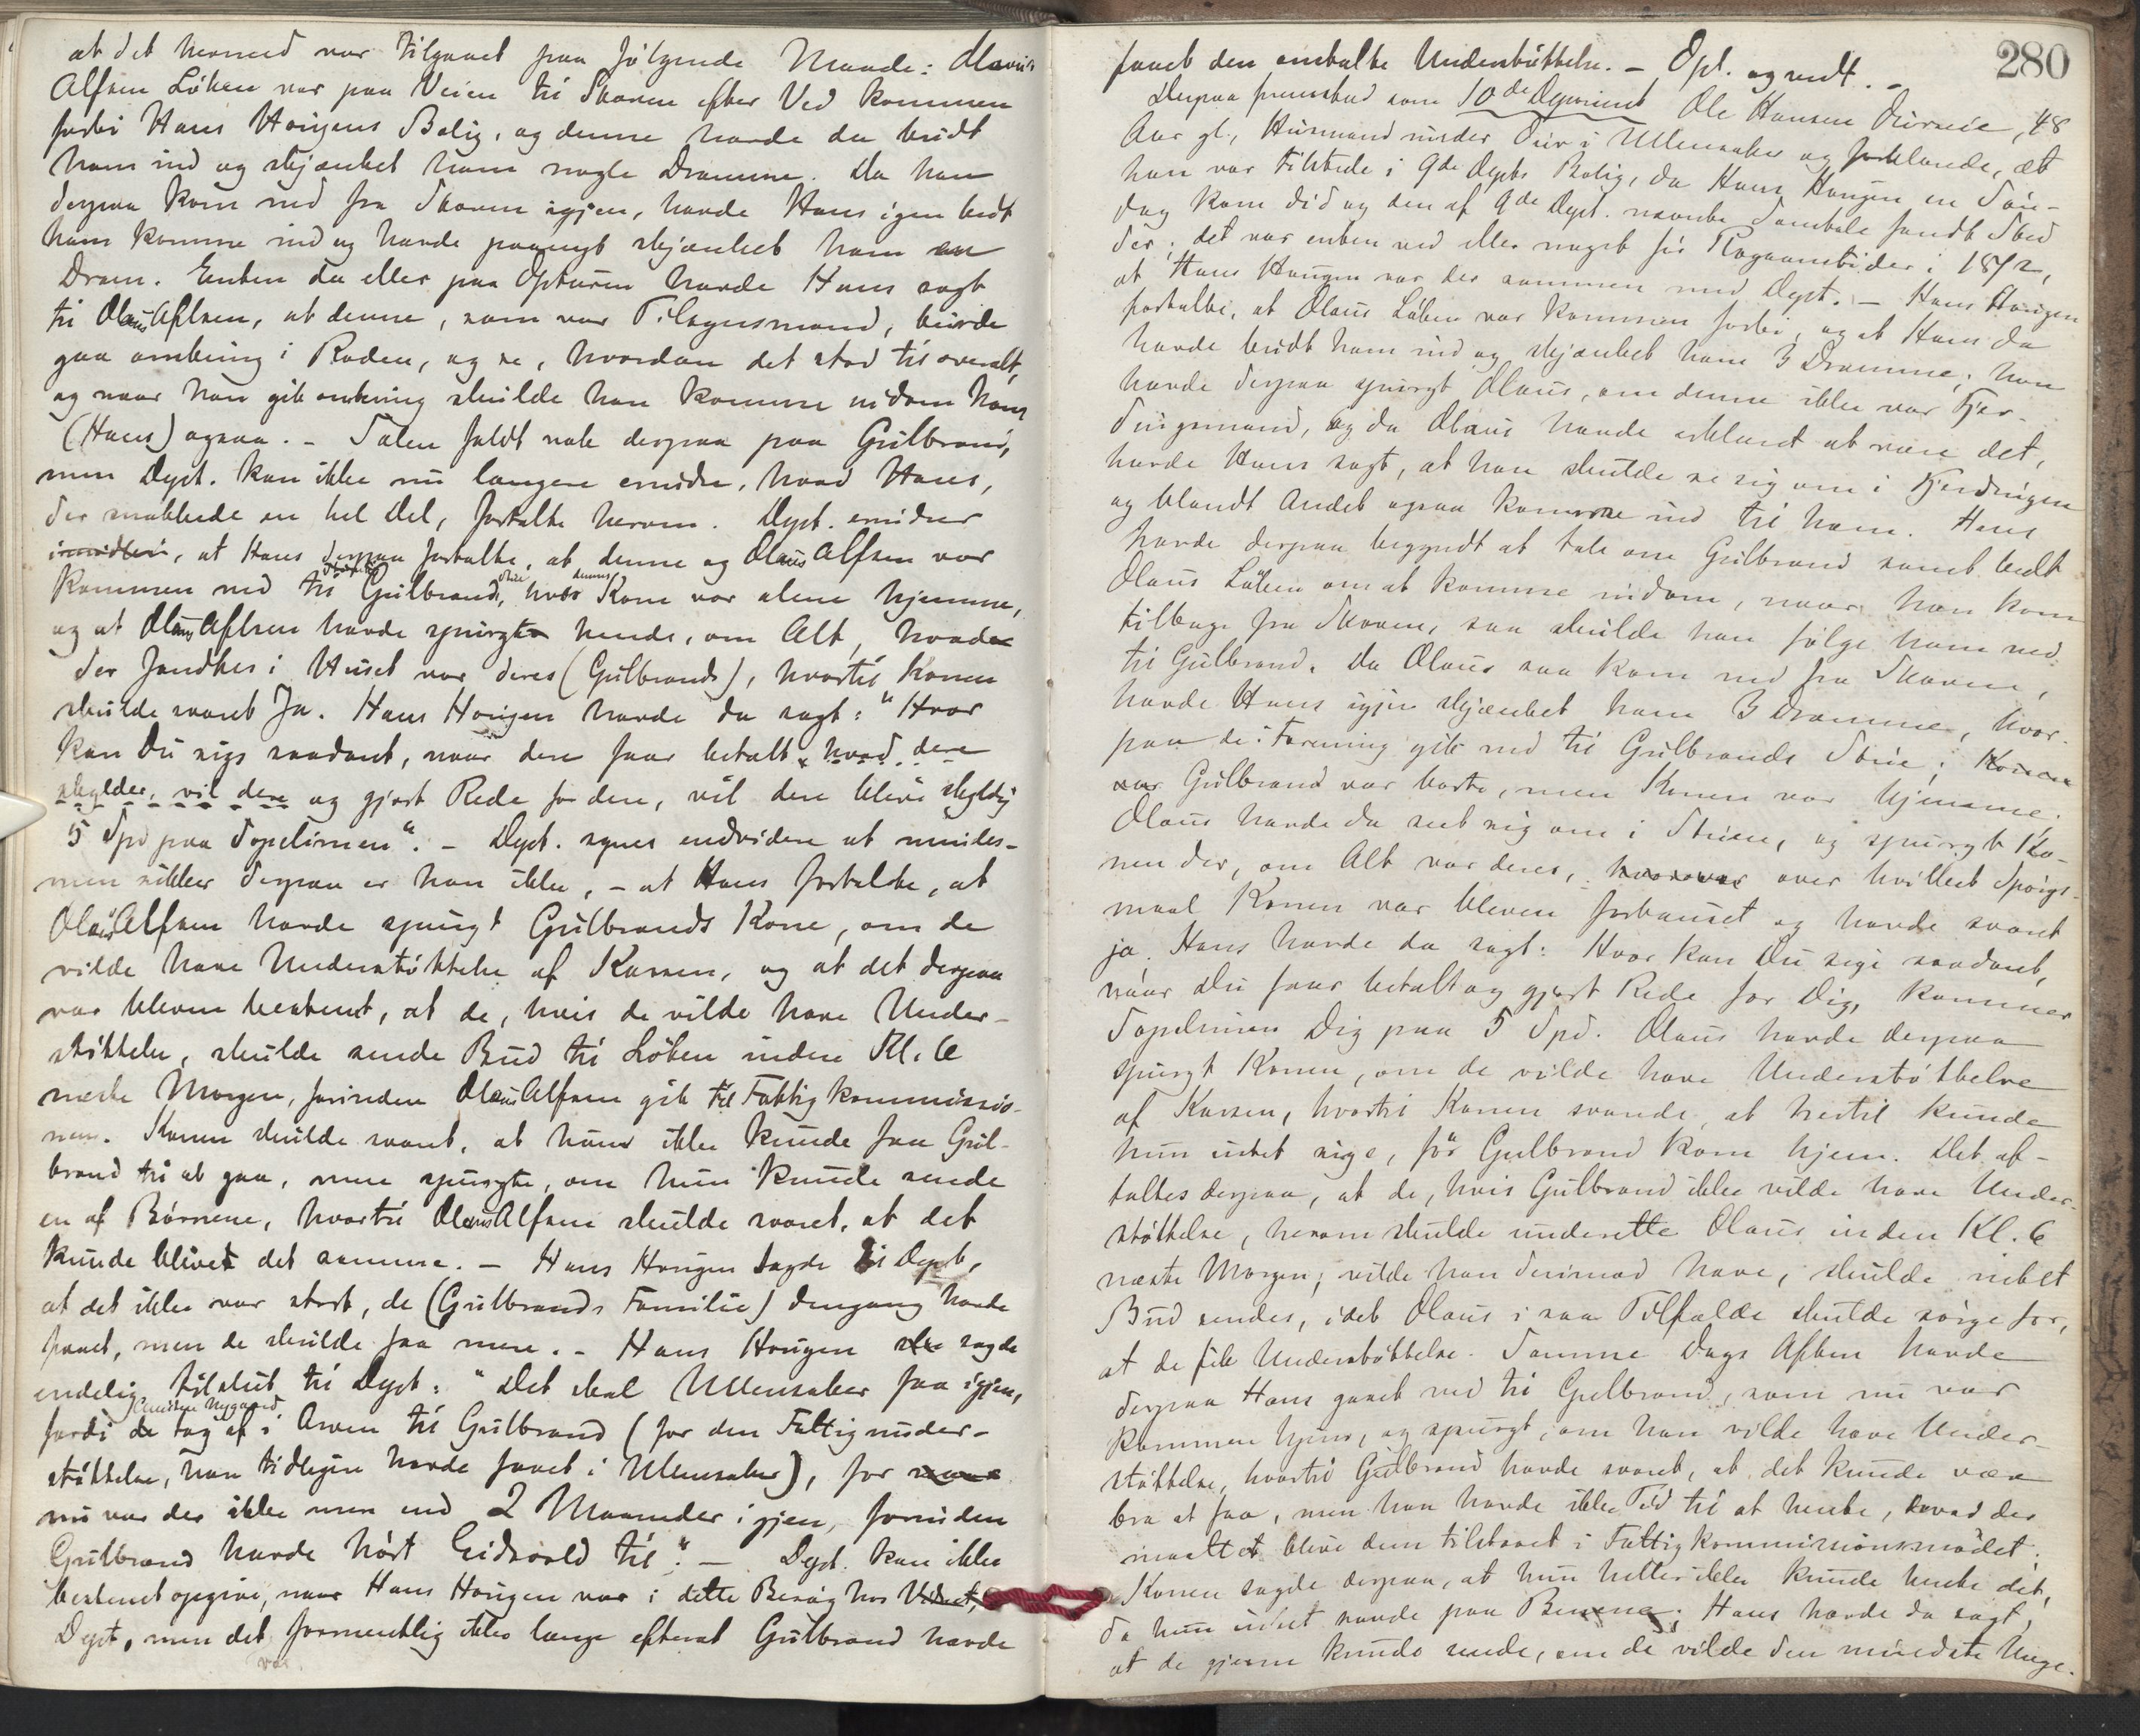 at det hermed var tilgaaet paa følgende Maade: Olaus
Alfsen Løken var paa Veien til Skoven efter Ved kommen
forbi Hans Hougens Bolig, og denne havde da budt
ham ind og skjænket ham nogle Dramme. Da han
derpaa kom ned fra Skoven igjen, havde Hans igjen bedt
ham komme ind og havde paanyt skjænket ham en
Dram. Enten da eller paa Opturen havde Hans sagt
til Olaus Alfsen, at denne, som var Tilsynsmand, burde
gaa omkring i Roden, og se, hvordan det stod til overalt,
og naar han gik omkring skulde han komme indom ham
(Hans) ogsaa. - Talen faldt nok derpaa paa Gulbrand,
men Dept. kan ikke nu længere erindre, hvad Hans,
der snakkede en hel Del, fortalte herom. Dept. erindrer
imidlert, at Hans derpaa fortalte, at denne og Olaus Alfsen var
kommen ned til Gulbrand, hvor dennes Kone var alene hjemme,
og at Olaus Alfsen havde spurgt hende, om Alt, hvad
der fandtes i Huset var deres (Gulbrands), hvortil Konen
skulde svaret Ja. Hans Hougen havde da sagt: "Hvor
kan Du sige saadant, naar dere faar betalt hvad dere
skylder, vil dere og gjort Rede for dere, vil dere blive skyldig
5 Spd paa Topelinien". - Dept. synes endvidere at mindes -
men sikker derpaa er han ikke, - at Hans fortalte, at
Olaus Alfsen havde spurgt Gulbrands Kone, om de
vilde have Understøttelse af Kassen, og at det derpaa
var bleven bestemt, at de, hvis de vilde have Under-
støttelse, skulde sende Bud til Løken inden Kl. 6
næste Morgen, forinden Olaus Alfsen gik til Fattigkommissio-
nen. Konen skulde svaret, at hun ikke kunde faa Gul-
brand til at gaa, men spurgte, om hun kunde sende
en af Børnene, hvortil Olaus Alfsen skulde svaret, at det
kunde blive det samme. - Hans Hougen sagde til Dept,
at det ikke var stort, de (Gulbrands Familie) dengang havde
faaet, men de skulde faa mere. - Hans Hougen sagde
endelig tilslut til Dept: "Det skal Ullensaker faa igjen,
fordi de tog af i Arven til Gulbrand (for den Fattigunder-
støttelse, han tidligere havde faaet i Ullensaker), for
nu var der ikke mere end 2 Maaneder igjen, forinden
Gulbrand havde hørt Eidsvold til". - Dept. kan ikke
bestemt opgive, naar Hans Hougen var i dette Besøg hos
Dept, men det var formentlig ikke længe efterat Gulbrand havde
280
faaet den omtalte Understøttelse. - Opl. og vedt. -
Derpaa fremstod som 10de Deponent Ole Hansen, 48
Aar gl., Husmand under i Ullensaker og forklarede, at
han var tilstede i 9de Depts Bolig, da Hans Hougen en Søn-
dag kom did og den af 9de Dept. nævnte Samtale fandt Sted
der; det var enten ved eller noget før i 1872,
at Hans Hougen var der sammen med Dept. - Hans Hougen
fortalte, at Olaus Løken var kommen forbi, og at Hans da
havde budt ham ind og skjænket ham 3 Dramme; han
havde derpaa spurgt Olaus, om denne ikke var Fjer-
dingsmand, og da Olaus havde erklæret at være det,
havde Hans sagt, at han skulde se sig om i Fjerdingen
og blandt Andet ogsaa komme ind til ham. Hans
havde derpaa begyndt at tale om Gulbrand samt bedt
Olaus Løken om at komme indom, naar han kom
tilbage fra Skoven, saa skulde han følge ham ned
til Gulbrand. Da Olaus saa kom ned fra Skoven,
havde Hans igjen skjænket ham 3 Dramme, hvor-
paa de i Forening gik ned til Gulbrands Stue;
Gulbrand var borte, men Konen var hjemme.
Olaus havde da seet sig om i Stuen, og spurgt Ko-
nen der, om Alt var deres, over hvilket Spørgs-
maal Konen var bleven forbauset og havde svaret
ja. Hans havde da sagt: Hvor kan Du sige saadant,
naar Du faar betalt og gjort Rede for Dig, kommer
Topelinien Dig paa 5 Spd. Olaus havde derpaa
spurgt Konen, om de vilde have Understøttelse
af Kassen, hvortil Konen svarede, at hertil kunde
hun intet sige, før Gulbrand kom hjem. Det af-
taltes derpaa, at de, hvis Gulbrand ikke vilde have Under-
støttelse, herom skulde underrette Olaus inden Kl. 6
næste Morgen; vilde han derimod have, skulde intet
Bud sendes, idet Olaus i saa Tilfælde skulde sørge for,
at de fik Understøttelse. Samme Dags Aften havde
derpaa Hans gaaet ned til Gulbrand, som nu var
kommen hjem, og spurgt, om han vilde have Under-
støttelse, hvortil Gulbrand havde svaret, at det kunde være
bra at faa, men han havde ikke Tid til at hente, hvad der
maatte blive dem tilstaaet i Fattigkommissionsmødet.
Konen sagde derpaa, at hun heller ikke kunde hente det,
da hun intet havde paa Benene; Hans havde da sagt,
at de gjerne kunde sende, om de vilde den mindste Unge.